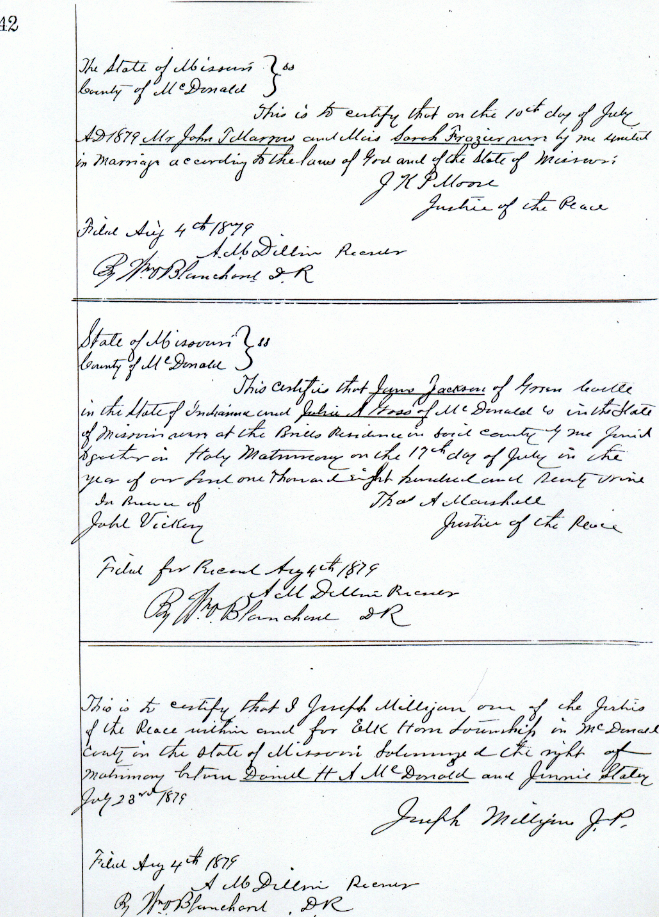 42
The State of Missouri } ss
County of McDonald
This is to certify that on the 10th day of July
AD 1879 Mr John T Marrow and Miss Sarah Frazier was by me united
in Marriage according to the laws of God and of the State of Missouri
J K P Moore
Justice of the Peace
Filed Aug 4th 1879
A. M Dillin Recorder
By Wm O Blanchard D. R
State of Missouri } ss
County of McDonald
This certifies that Jackson of Green Castle
in the State of Indianna and Julia A Goss of McDonald Co in the State
of Missouri were at the Brides Residence in said county by me Joined
together in Holy Matrimony on the 17th day of July in the
year of our Lord one Thousand eight hundred and Seventy nine
In Presence of Thos A Marshall
John Vickery Justice of the Peace
Filed for Record Aug 4th 1879
A M Dillin Recorder
By Wm O Blanchard DR
This is to certify that I Joseph Milligan one of the Justices
of the Peace within and for Elk Horn Township in McDonald
County in the State of Missouri Solemnized the right of
Matrimony between Daniel H A McDonald and Jinnie Staley
July 23rd 1879
Joseph Milligan J. P.
Filed Aug 4th 1879
A M Dillin Recorder
By Wm O Blanchard DR